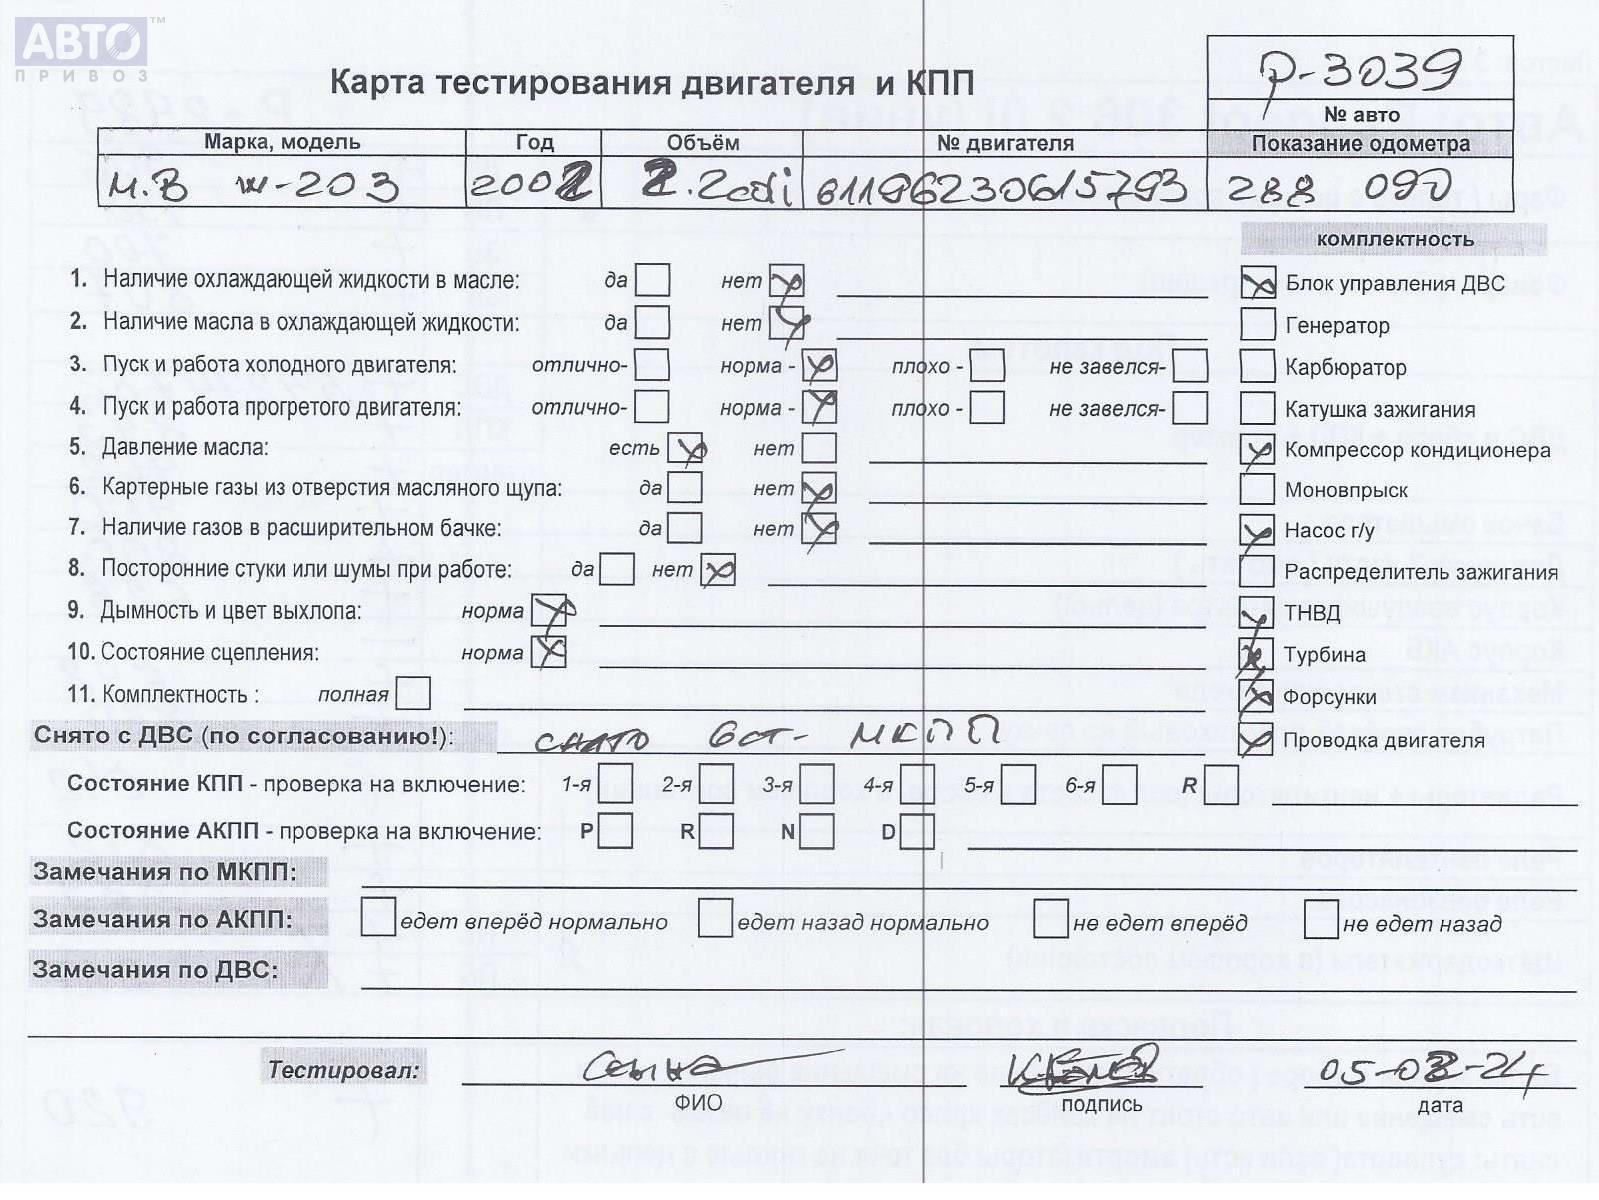 АВТО™
ПРИВОЗ
Карта тестирования двигателя и КПП
р-3039
№ авто
Марка, модель Год Объём № двигателя Показание одометра
М.В ш-203 2002 2.2cdi 61196230615793 288 090
комплектность
1. Наличие охлаждающей жидкости в масле: да нет
Блок управления ДВС
2. Наличие масла в охлаждающей жидкости: да нет
Генератор
3. Пуск и работа холодного двигателя: отлично- норма - плохо - не завелся-
Карбюратор
4. Пуск и работа прогретого двигателя: отлично- норма - плохо - не завелся-
Катушка зажигания
5. Давление масла: есть нет
Компрессор кондиционера
6. Картерные газы из отверстия масляного щупа: да нет
Моновпрыск
7. Наличие газов в расширительном бачке: да нет
Насос г/у
8. Посторонние стуки или шумы при работе: да нет
Распределитель зажигания
9. Дымность и цвет выхлопа: норма
ТНВД
10. Состояние сцепления: норма
Турбина
11. Комплектность : полная
Форсунки
Снято с ДВС (по согласованию!): снято 6ст- МКПП
Проводка двигателя
Состояние КПП - проверка на включение: 1-я 2-я 3-я 4-я 5-я 6-я R
Состояние АКПП - проверка на включение: P R N D
Замечания по МКПП:
Замечания по АКПП: едет вперёд нормально едет назад нормально не едет вперёд не едет назад
Замечания по ДВС:
Тестировал:
ФИО подпись дата